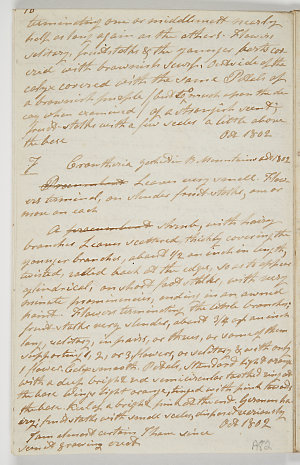 10
terminating one or middlemost nearly
half as long again as the others. Flowers
solitary, fruitstalks & the younger parts cov
ered with brownish scurf. Outside of the
calyx covered with the same Petals of
a brownish purple (but upon the de
cay when examined) of a strongish scent;
fruit stalks with a few scales a little above
the base Oct 1802
7 gathd in B. Mountains oct 1802
Leaves very small. Flow
ers terminal, on slender fruit stalks, one or
more on each
A Shrub, with hairy
branches Leaves scattered, thickly covering the
younger branches, about 1/2 an inch in length,
twisted, rolled back at the edge, so as to appear
cylindrical, on short foot stalks, with very
minute prominencies, ending in an award
point. Flowers terminating the little branches;
fruit stalks very slender, about 3/4 of an inch
long, solitary, in pairs, or threes, or some of them
supporting 1, 2, or 3 flowers, or solitary & with only
1 flower. Calyx smooth. Petals, Standard light orange
with a deep bright red semicircular toothed ring at
the base Wings light orange, tinged with pink towards
the base. Keel of a bright pink at the end. Germen ha
iry; fruit stalks with small scales, disposed variously
I am almost certain I have since Oct 1802
seen it growing erect
A82